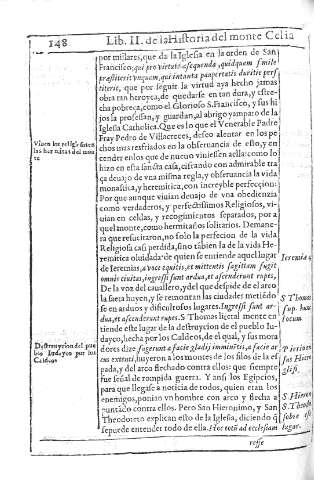 148
Lib. II. de la Historia del monte Celia
por millares, que da la Iglesia en la orden de San
Francisco; qui pro virtute assequenda, quidquam simile
præstiterit vnquam, qui in tanta paupertatis duritie pers
titerit, que por seguir la virtud aya hecho jamas
obra tan heroyca, de quedarse en tan dura, y estre-
cha pobreça, como el Glorioso S. Francisco, y sus hi
jos la professan, y guardan, al abrigo y amparo de la
Iglesia Catholica. Que es lo que el Venerable Padre
Fray Pedro de Villacreces, desseo alentar en los pe
chos mas resfriados en la obseruancia de esto, y en
cender en los que de nuevo viniessen a ella: como lo
hizo en esta sancta casa, cifrando con admirable tra
ça debajo de vna misma regla, y obseruancia la vida
monastica, y heremitica, con increyble perfeccion:
Por que aunque viuian debajo de vna obediencia
como verdaderos, y perfectissimos Religiosos, vi-
uian en celdas, y recogimientos separados, por a
quel monte, como hermitaños solitarios. Demane
ra que resucitaron, no solo la perfecion de la vida
Religiosa casi perdida, sino tābien la de la vida He
remitica oluidada de quien se entiende aquel lugar
de Ieremias, a voce equitis, et mittentis sagittam fugit
omnis ciuitas, ingressi sunt ardua, et ascenderunt rupes,
De la voz del cauallero, y del que despide el arco
la saeta huyen, y se remontan las ciudades metiēdo
se en arduos y dificultosos lugares. Ingressi sunt ar-
dua, et ascenderunt rupes. S Thomas literal mente en
tiende este lugar de la destruycion de el pueblo Iu-
dayco, hecha por los Caldeos, de el qual, y sus mora
dores dize fugerunt a facie gladij imminētis, a facie ar
cus extenti, huyeron a los montes de los filos de la es
pada, y del arco flechado contra ellos: que siempre
fue señal de rompida guerra. Y ansi los Egipcios,
para que llegasse a noticia de todos, quien eran los
enemigos, ponian vn hombre con arco y flecha a
puntado contra ellos. Pero San Hieronimo, y San
Theodoreto explican esto de la Iglesia, diciendo q̄
se puede entender todo de ella. Hoc totū ad ecclesiam
refe
Viuen los religiosos en
las hermitas del mon
te
Destruycion del pue
blo Iudayco por los
Caldeos
Ieremia 4
S Thoma
sup. hunc
locum
S Hieron
S. Theodo
sobre este
lugar.